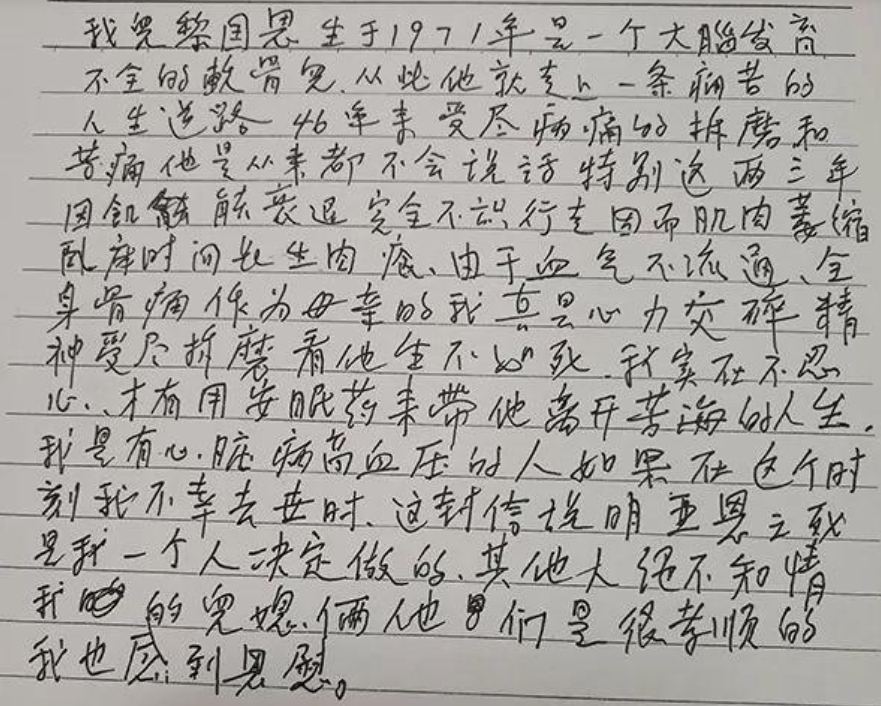 我児黎国恩生于1971年是一个大腦发育
不全的軟骨児.从此他就走上一条痛苦的
人生道路46年来受尽病痛的拆磨和
苦痛他是从来都不会说话特别这两三年
因飢能衰退完全不识行走因而肌肉萎缩
臥床时间长生肉瘡、由于血气不流通、全
身骨痛作为母亲的我真是心力交碎精
神受尽折磨看他生不如死.我实在不忍
心、才有用安眠药来带他离开苦海的人生.
我是有心脏病高血压的人如果在这个时
刻我不幸去世时、这封信说明亚恩之死
是我一个人决定做的.其他人绝不知情
我的児媳俩他们是很孝顺的
我也感到恩慰。